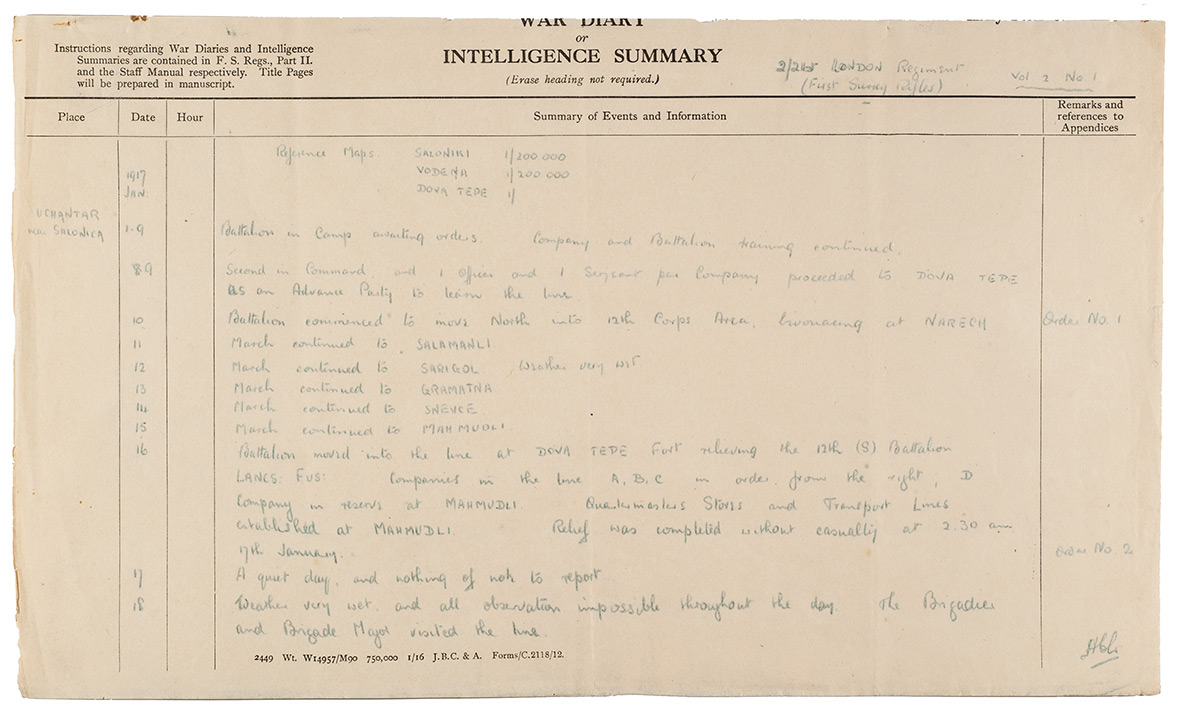 WAR DIARY
or
INTELLIGENCE SUMMARY
(Erase heading not required.)
Instructions regarding War Diaries and Intelligence
Summaries are contained in F. S. Regs., Part II.
and the Staff Manual respectively. Title Pages
will be prepared in manuscript.
2/21st LONDON Regiment
(First Surrey Rifles)
Vol 2 No. 1
Place Date Hour Summary of Events and Information Remarks and references to Appendices
Reference Maps. SALONIKI 1/200 000
1917 VODENA 1/200 000
JAN. DOVA TEPE 1/
UCHANTAR
near SALONICA 1-9 Battalion in Camp awaiting orders. Company and Battalion training continued.
8.9 Second in Command, and 1 Officer and 1 Sergeant per Company proceeded to DOVA TEPE
as an Advance Party to learn the line.
10 Battalion commenced to move North into 12th Corps Area, bivouacing at NARECH Order No. 1
11 March continued to SALAMANLI.
12 March continued to SARIGOL. Weather very wet
13 March continued to GRAMATNA
14 March continued to SNEVCE.
15 March continued to MAHMUDLI.
16 Battalion moved into the line at DOVA TEPE Fort relieving the 12th (S) Battalion
LANCS: FUS: Companies in the line A, B, C in order from the right, D
Company in reserve at MAHMUDLI. Quartermasters Stores and Transport Lines
established at MAHMUDLI. Relief was completed without casualty at 2.30 am
17th January. Order No. 2
17 A quiet day, and nothing of note to report
18 Weather very wet, and all observation impossible throughout the day. The Brigadier
and Brigade Major visited the line.
2449 Wt. W14957/M90 750,000 1/16 J.B.C. & A. Forms/C.2118/12.